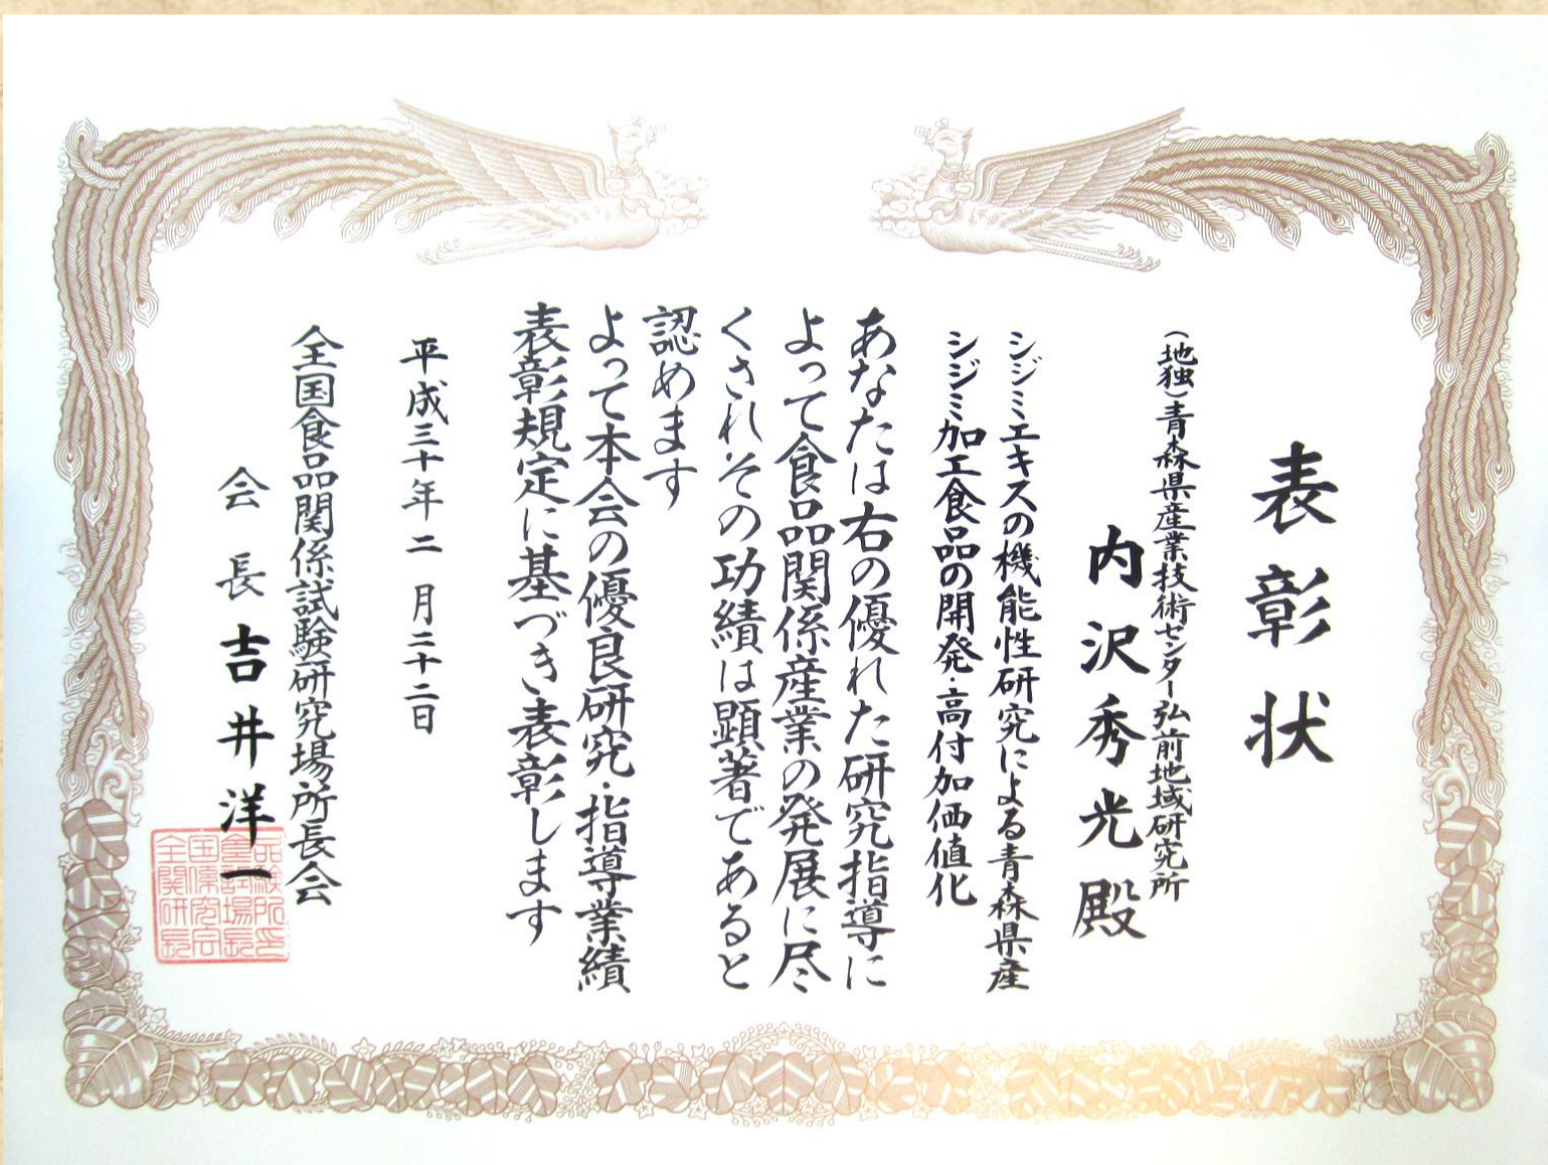 表彰状
(地独)青森県産業技術センター弘前地域研究所
内沢秀光殿
シジミエキスの機能性研究による青森県産
シジミ加工食品の開発・高付加価値化
あなたは右の優れた研究指導に
よって食品関係産業の発展に尽
くされその功績は顕著であると
認めます
よって本会の優良研究・指導業績
表彰規定に基づき表彰します
平成三十年二月二十二日
全国食品関係試験研究場所長会
会長吉井洋一